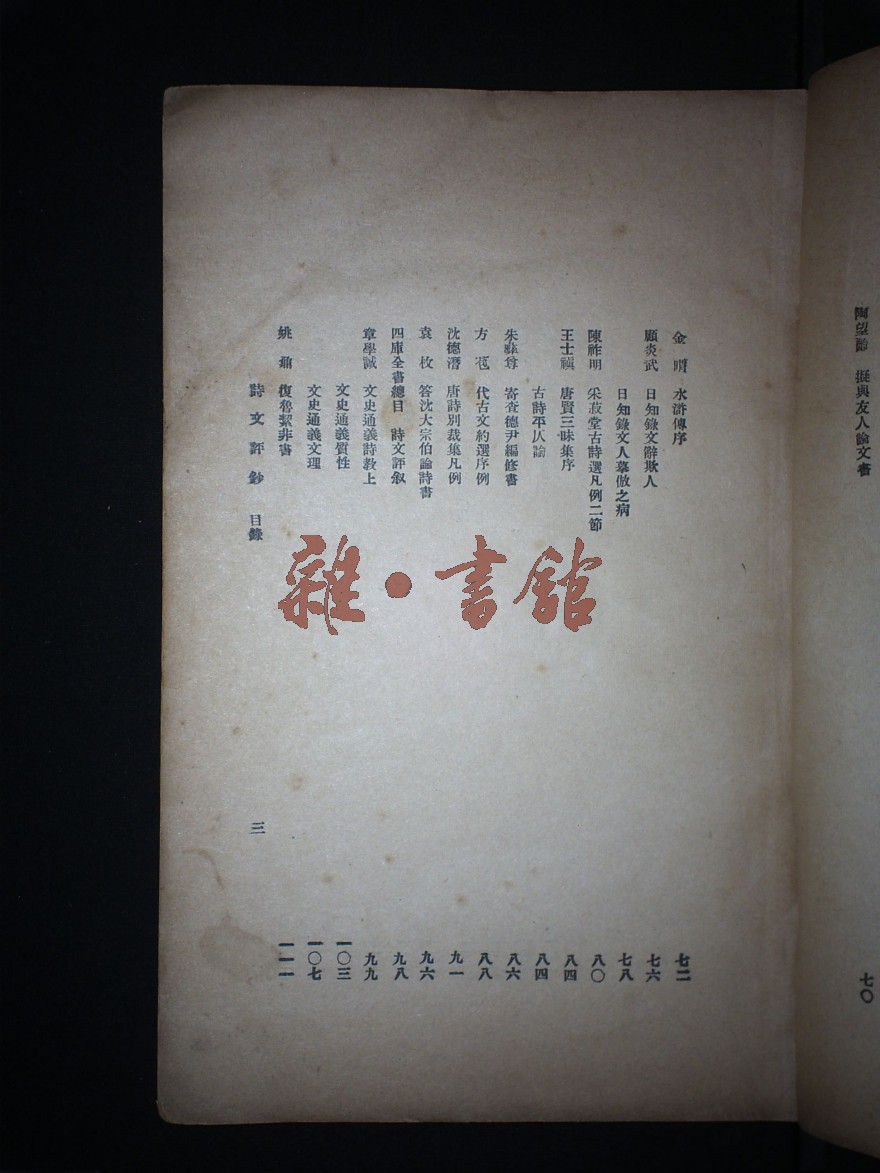 陶望齡 擬與友人論文書 七〇
金喟 水滸傳序 七二
顧炎武 日知錄文辭欺人 七六
日知錄文人摹倣之病 七八
陳祚明 采菽堂古詩選凡例二節 八〇
王士禛 唐賢三昧集序 八四
古詩平仄論 八四
朱彝尊 寄查德尹編修書 八六
方苞 代古文約選序例 八八
沈德潛 唐詩別裁集凡例 九一
袁枚 答沈大宗伯論詩書 九六
四庫全書總目 詩文評敘 九八
章學誠 文史通義詩教上 九九
文史通義質性 一〇三
文史通義文理 一〇七
姚鼐 復魯絜非書 一一一
詩文評鈔 目錄 三
雜·書館